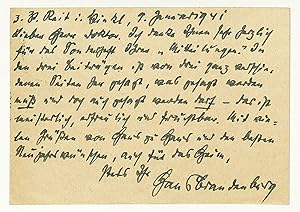 z. Zt. Reit i. Winkl, 9. Januar 1941
Lieber Herr Doktor. Ich danke Ihnen sehr herzlich
für das Sonderheft Ihrer „Mitteilungen“. In
den drei Beiträgen ist von drei ganz verschie-
denen Seiten her gesagt, was gesagt werden
muß und doch nicht gesagt werden darf – das ist
meisterlich, erfreulich und fruchtbar. Mit vie-
len Grüßen von Haus zu Haus und den besten
Neujahrswünschen, auch für das Heim,
stets Ihr
Hans Brandenburg